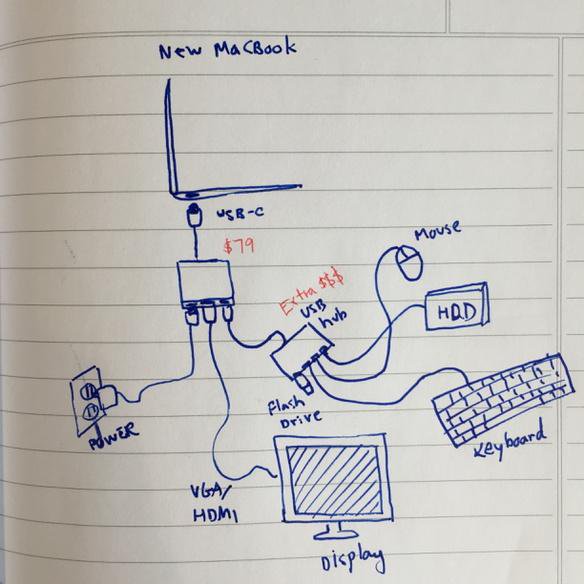 New MacBook
USB-C
$79
Mouse
Extra $$$
USB
hub
HDD
Flash
Drive
POWER
Keyboard
VGA/
HDMI
Display